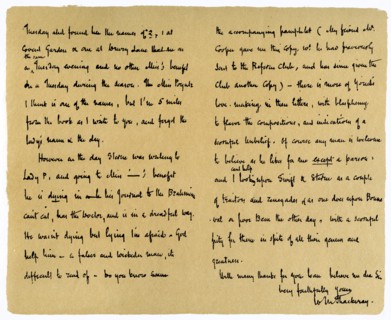 Tuesday and found her the names of 3, 1 at
Covent Garden & one at Drury Lane that are on
the same
a Tuesday evening and no other Miss's benefit
on a Tuesday during the season. The Miss Poyntz
I think is one of the names, but I'm 5 miles
from the book as I write to you, and forget the
lady's name & the day.
However on the day Sterne was writing to
Lady P., and going to Miss ——'s benefit
he is dying in his Journal to the Brahmine
can't eat, has the doctor, and is in a dreadful way.
He wasn't dying but lying I'm afraid - God
help him - a falser and wickeder man, it
difficult to read of - Do you know
the accompanying pamphlet (My friend Mr.
Cooper gave me this copy, wh he had previously
sent to the Reform Club, and has since given the
Club another copy) - there is more of Yorick's
love-making in these letters, with blasphemy
to flavor the compositions, and indications of a
scornful unbelief. Of course any man is welcome
to believe as he likes for me except a parson,
and help
and I look upon Swift & Sterne as a couple
of traitors and renegades as one does upon Bonneval
or poor Bem the other day, with a scornful
pity for them in spite of all their genius and
greatness.
With many thanks for your loan believe me dear Sir
Very faithfully Yours
W M Thackeray.